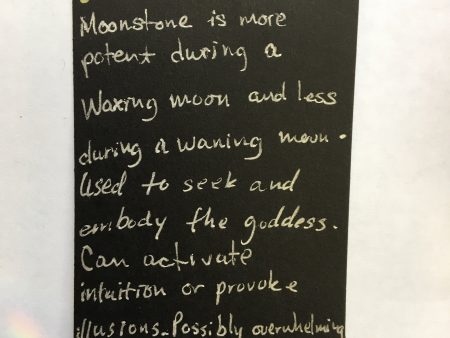 Moonstone is more
potent during a
Waxing moon and less
during a waning moon.
Used to seek and
embody the goddess.
Can activate
intuition or provoke
illusions. Possibly overwhelming